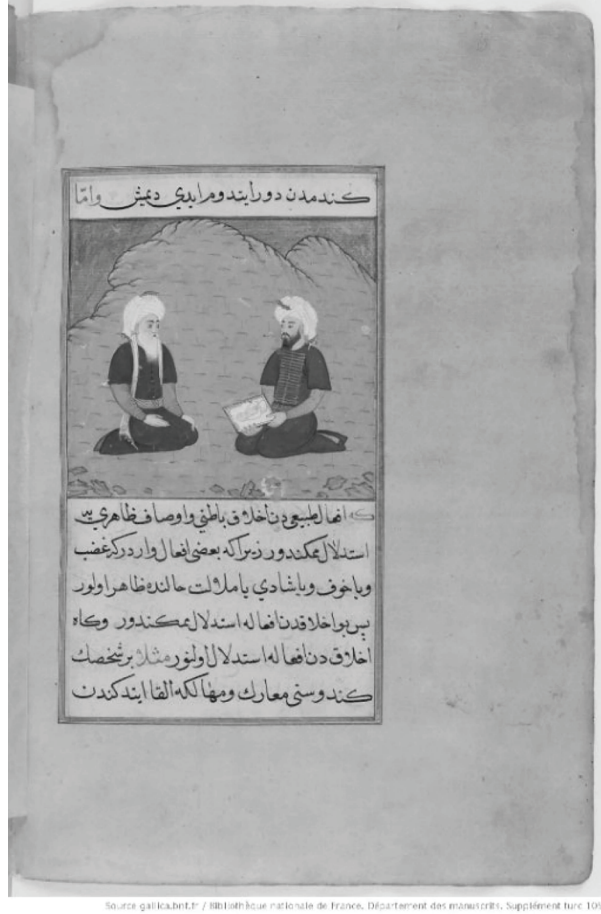 كندمدن دور ايتدوم ايدي ديمش واما
كه افعال طبيعيدن اخلاق باطني واوصاف ظاهري يه
استدلال ممكندور زيرا كه بعضى افعال واردركه غضب
ويا خوف ويا شادي يا ملالت حالنده ظاهر اولور
پس بو اخلاقدن افعاله استدلال ممكندور وكاه
اخلاق دن افعاله استدلال اولنور مثلا بر شخصك
كندوسنى معارك ومهالكه القا ايتدكندن
Source gallica.bnf.fr / Bibliothèque nationale de France. Département des manuscrits. Supplément turc 105